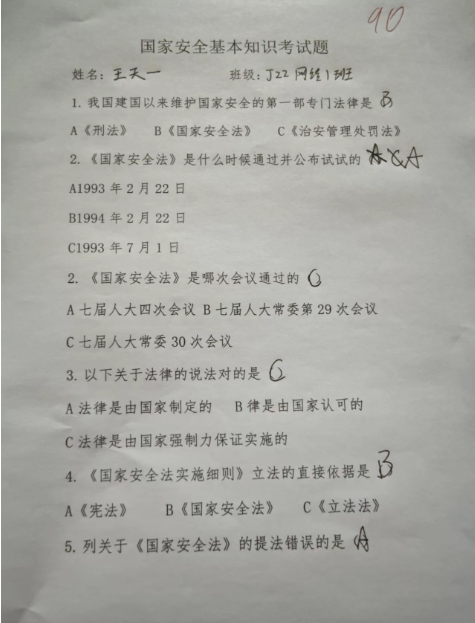 90
国家安全基本知识考试题
姓名：王天一 班级：J22网络1班
1. 我国建国以来维护国家安全的第一部专门法律是 B
A《刑法》 B《国家安全法》 C《治安管理处罚法》
2.《国家安全法》是什么时候通过并公布试试的 A
A1993 年 2 月 22 日
B1994 年 2 月 22 日
C1993 年 7 月 1 日
2.《国家安全法》是哪次会议通过的 C
A 七届人大四次会议 B 七届人大常委第 29 次会议
C 七届人大常委 30 次会议
3. 以下关于法律的说法对的是 C
A 法律是由国家制定的 B 律是由国家认可的
C 法律是由国家强制力保证实施的
4.《国家安全法实施细则》立法的直接依据是 B
A《宪法》 B《国家安全法》 C《立法法》
5. 列关于《国家安全法》的提法错误的是 A